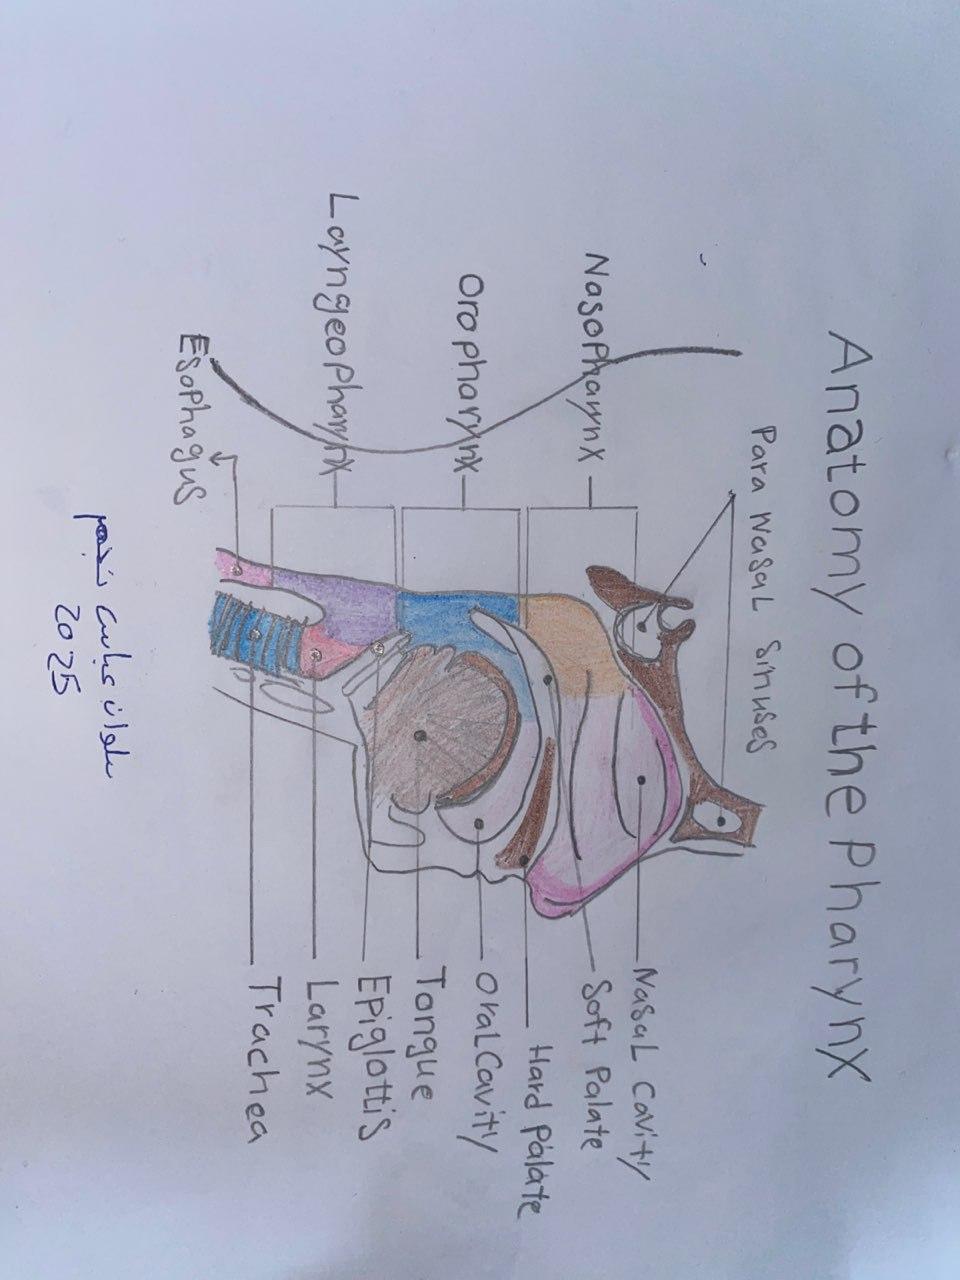 Anatomy of the Pharynx
Para Nasal Sinuses
Nasopharynx
Oropharynx
Layngeopharynx
Esophagus
Nasal Cavity
Soft Palate
Hard Palate
Oral Cavity
Tongue
Epiglottis
Larynx
Trachea
2025